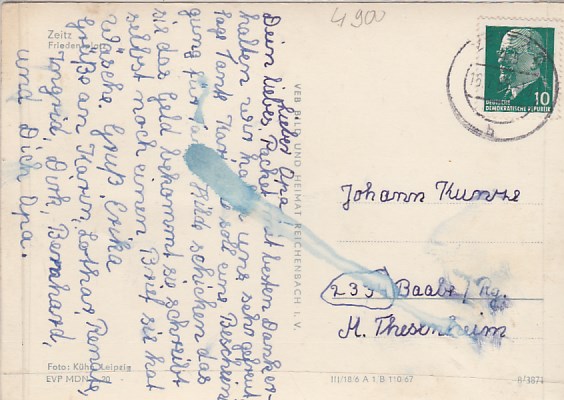 4900
Zeitz
Lieber Opa!
Dein liebes Packet mit besten Dank er-
halten wir haben uns sehr gefreut
sagt Tante Karin sie soll eine Beschein
gung für schicken das
sie das Geld bekommt sie schreibt
selbst noch einen Brief sie hat
Wäsche. Gruß Erika
Grüße an Karin, Lothar, Renate,
Ingrid, Dirk, Bernhard,
und Dich Opa.
Foto: Kühn, Leipzig
EVP MDN 20
VEB BILD UND HEIMAT REICHENBACH I. V.
III/18/6 A 1 B 110/67
8/3871
10
DEUTSCHE
DEMOKRATISCHE REPUBLIK
Johann Kunze
Baabe / Rg.